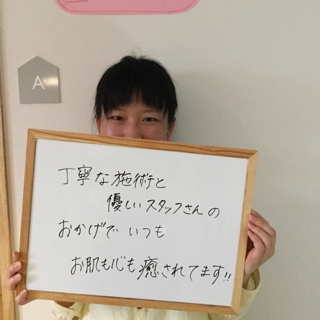 A
丁寧な施術と
優しいスタッフさんの
おかげで いつも
お肌も心も癒されてます!!